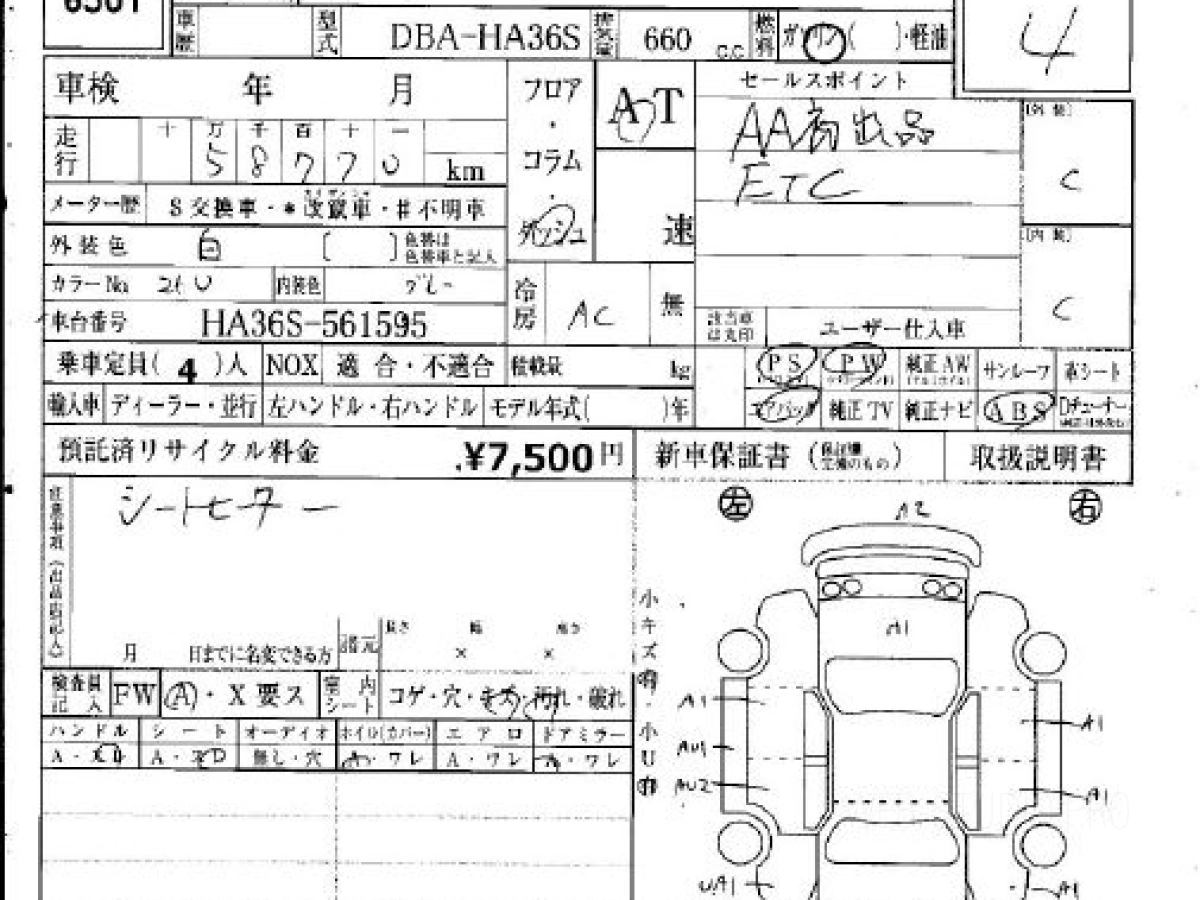 6501
車歴 型式 DBA-HA36S 排気量 660 C.C 燃料 ガソリン( )・軽油
4
車検 年 月 フロア・コラム・ダッシュ AT セールスポイント
[外装]
C
走行 十 万 千 百 十 一
5 8 7 7 0 km
AA初出品
ETC
メーター歴 S交換車・*改竄車・#不明車
速
[内装]
C
外装色 白 [ ] 色替は色替車と記入
カラーNo 26U 内装色 グレー
冷房 AC 無
車台番号 HA36S-561595
該当車は丸印 ユーザー仕入車
乗車定員( 4 )人 NOX 適合・不適合 積載量 kg
PS PW 純正AW サンルーフ 革シート
輸入車 ディーラー・並行 左ハンドル・右ハンドル モデル年式( )年
エアバック 純正TV 純正ナビ ABS Dチューナー
預託済リサイクル料金 ¥7,500円 新車保証書 取扱説明書
注意事項(出品店記入)
シートヒーター
左 右
A2
月 日までに名変できる方 諸元 長さ × 幅 × 高さ
小キズ有・小U有
A1
検査員記入 FW A・X要ス 室内シート コゲ・穴・キズ・汚れ・破れ
ハンドル シート オーディオ ホイル(カバー) エアロ ドアミラー
無し・穴 A・ワレ A・ワレ A・ワレ
A1 A1
AU1
AU2 A1
UA1 A1